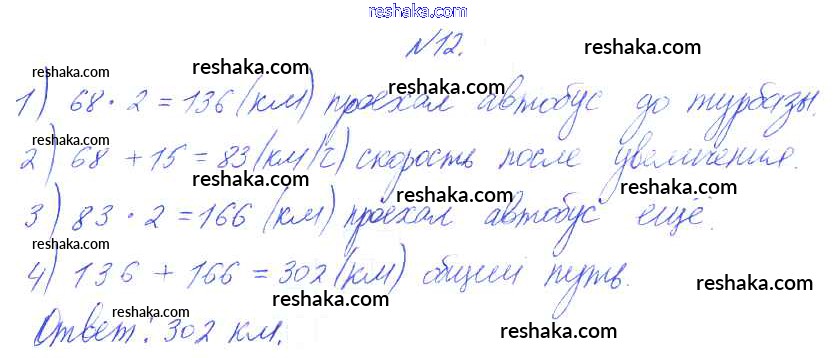 reshaka.com
№12. reshaka.com
reshaka.com reshaka.com reshaka.com
1) 68 · 2 = 136 (км) проехал автобус до турбазы.
reshaka.com reshaka.com
2) 68 + 15 = 83 (км/ч) скорость после увеличения.
reshaka.com reshaka.com reshaka.com
3) 83 · 2 = 166 (км) проехал автобус ещё.
reshaka.com reshaka.com
4) 136 + 166 = 302 (км) общий путь.
reshaka.com reshaka.com
Ответ: 302 км.
reshaka.com reshaka.com